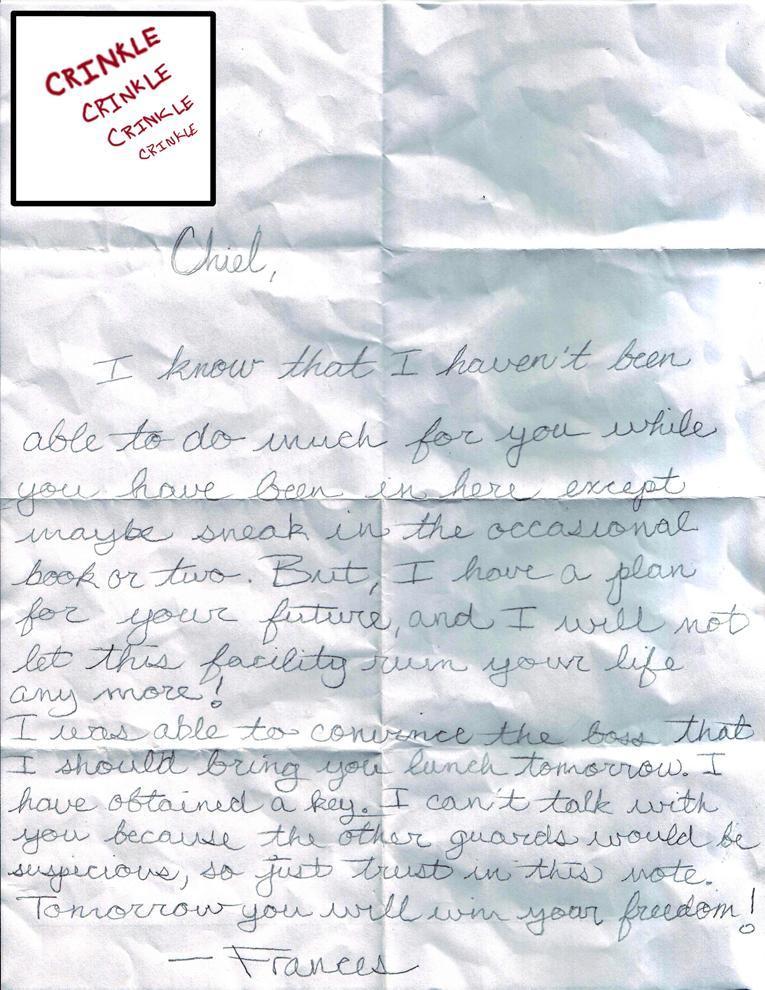 CRINKLE
CRINKLE
CRINKLE
CRINKLE
Chiel,
I know that I haven't been
able to do much for you while
you have been in here except
maybe sneak in the occasional
book or two. But, I have a plan
for your future, and I will not
let this facility ruin your life
any more!
I was able to convince the boss that
I should bring you lunch tomorrow. I
have obtained a key. I can't talk with
you because the other guards would be
suspicious, so just trust in this note.
Tomorrow you will win your freedom!
— Frances